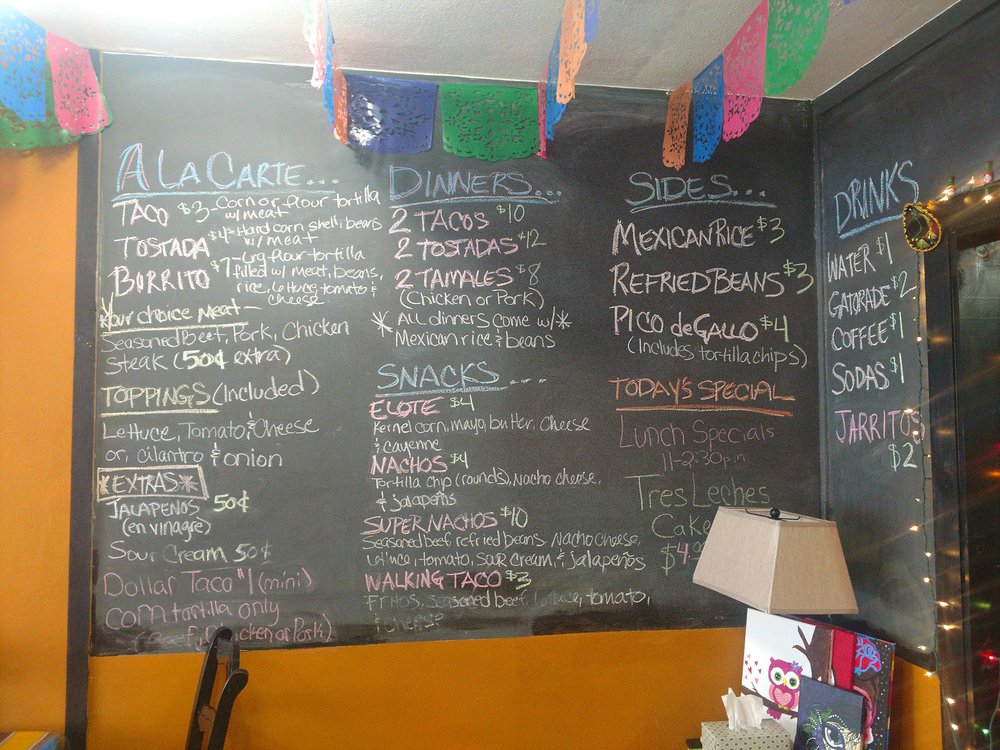 A LA CARTE...
TACO $3 - Corn or flour tortilla
w/ meat
TOSTADA $4 - Hard corn shell: beans
w/ meat
BURRITO $7 - Lrg flour tortilla
filled w/ meat, beans,
rice, lettuce, tomato &
cheese
*Your choice meat—
Seasoned Beef, Pork, Chicken
Steak (50¢ extra)
TOPPINGS (Included)
Lettuce, Tomato, & Cheese
or, cilantro & onion
*EXTRAS*
JALAPEÑOS 50¢
(en vinagre)
Sour Cream 50¢
Dollar Taco $1 (mini)
corn tortilla only
Beef, Chicken or Pork)
DINNERS...
2 TACOS $10
2 TOSTADAS $12
2 TAMALES $8
(Chicken or Pork)
*ALL dinners come w/*
Mexican rice & beans
SNACKS...
ELOTE $4
Kernel corn, mayo, butter, cheese
& cayenne
NACHOS $4
Tortilla chip (rounds), Nacho cheese,
& jalapeños
SUPER NACHOS $10
Seasoned beef, refried beans, Nacho cheese,
Lettuce, tomato, sour cream, & jalapeños
WALKING TACO $3
Fritos, seasoned beef, lettuce, tomato,
& cheese
SIDES...
MEXICAN RICE $3
REFRIED BEANS $3
PICO de GALLO $4
(Includes tortilla chips)
TODAY'S SPECIAL
Lunch Specials
11-2:30p.m
Tres Leches
Cake
$4
DRINKS
WATER $1
GATORADE $2
COFFEE $1
SODAS $1
JARRITOS
$2